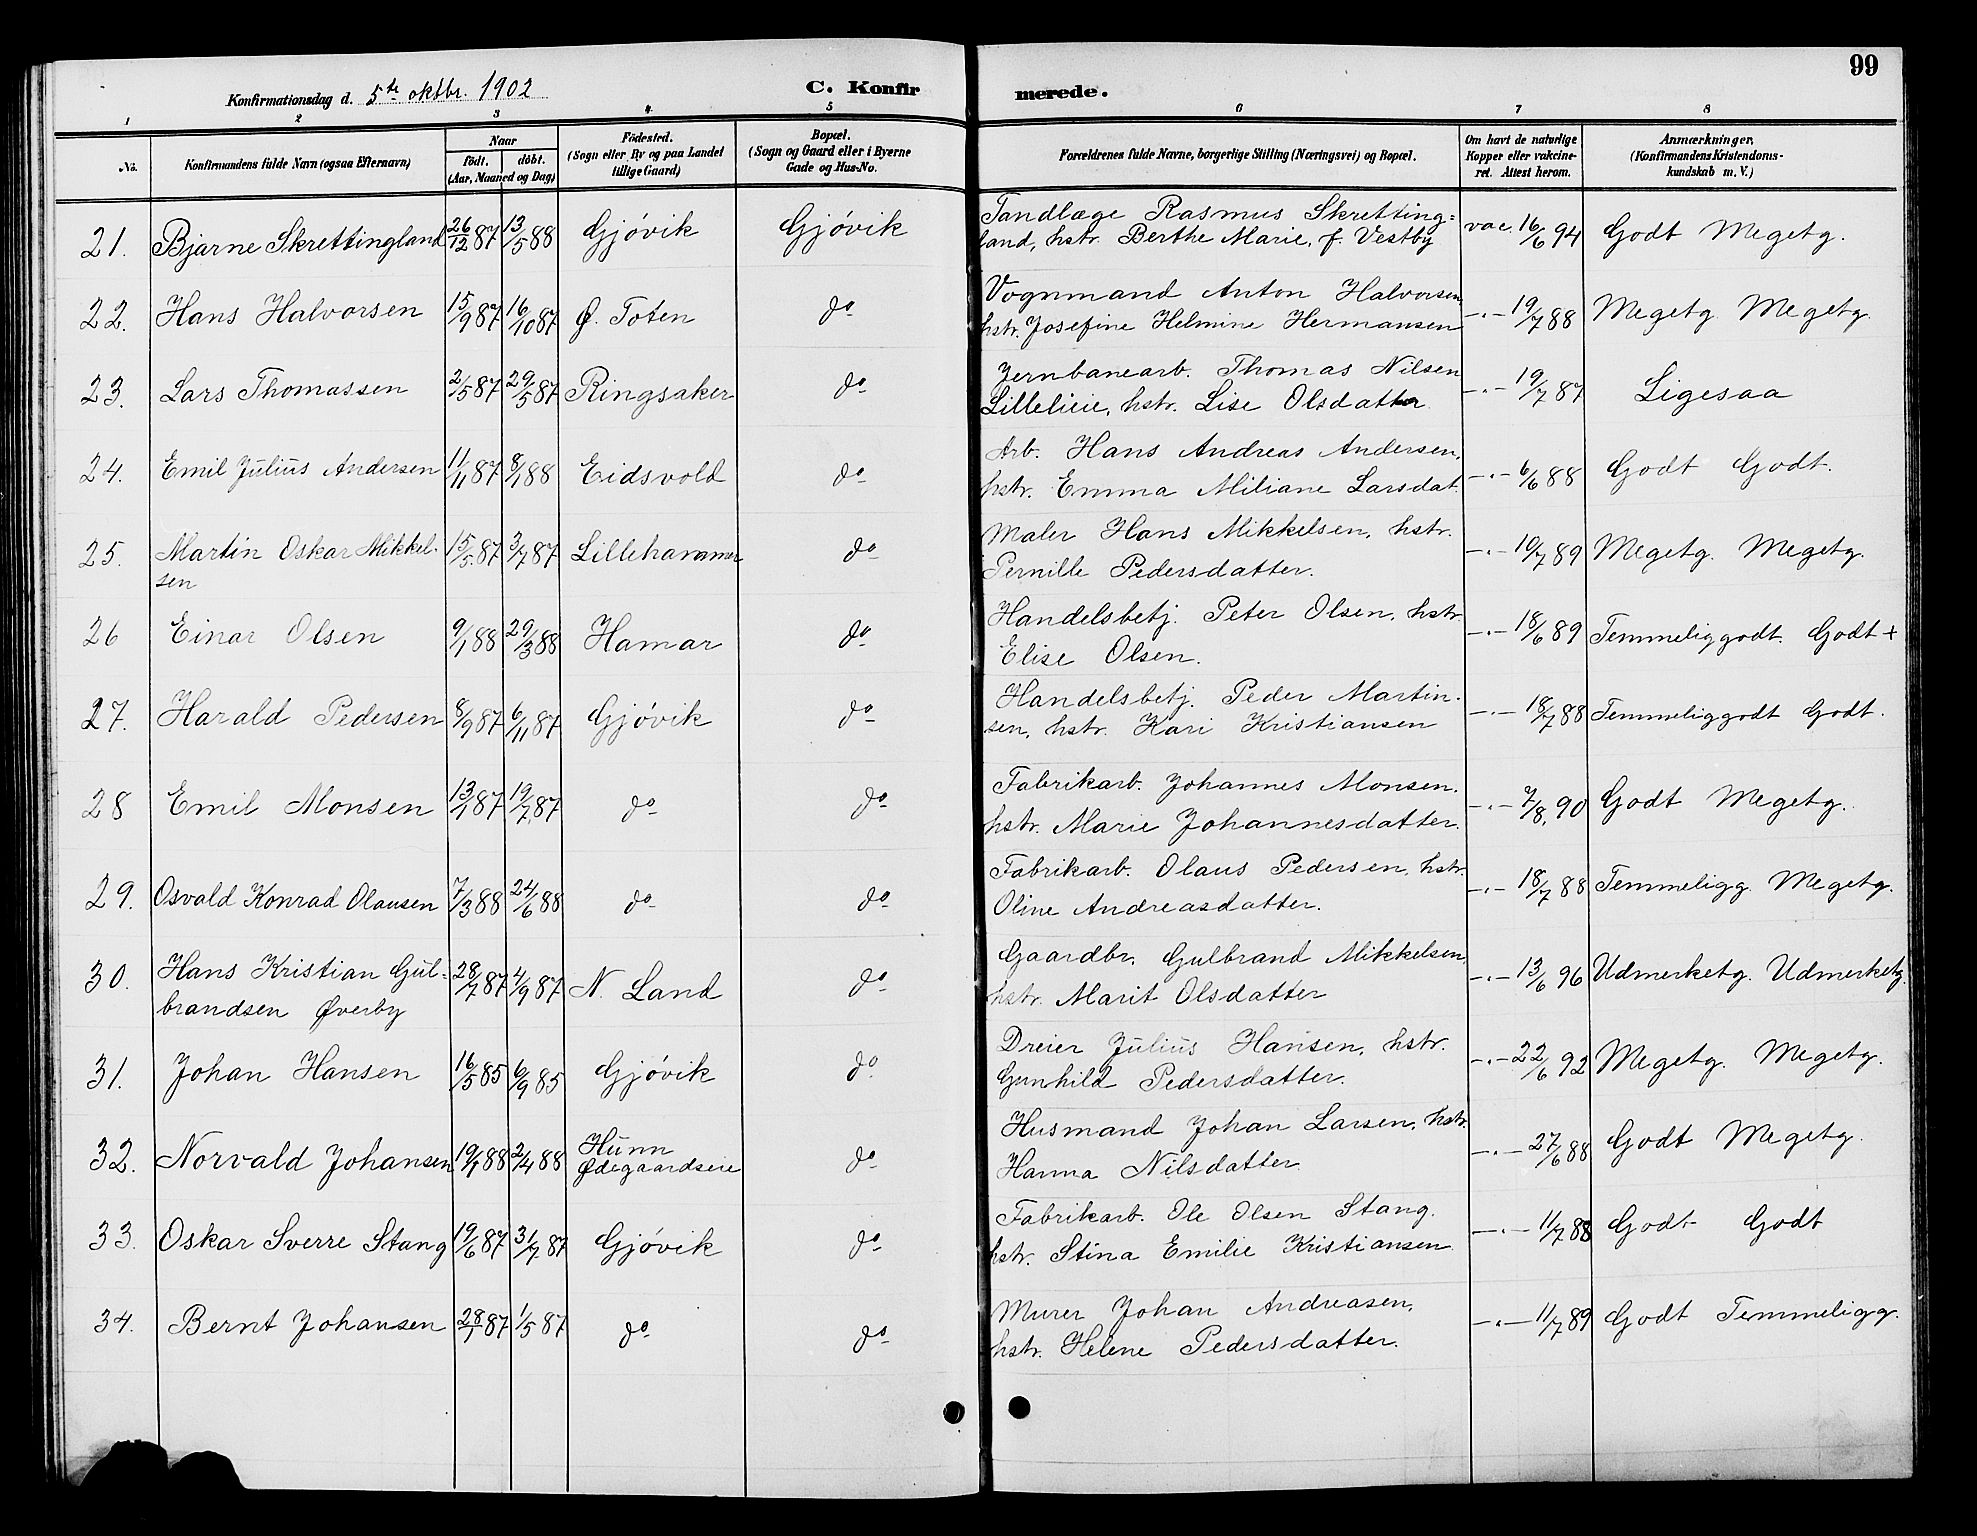 99
Konfirmationsdag d. 5te oktbr. 1902 C. Konfir merede.
1 2 3 4 5 6 7 8
No. Konfirmandens fulde Navn (ogsaa Efternavn) Naar födt. döbt. (Aar, Maaned og Dag) Födested. (Sogn eller By og paa Landet tillige Gaard) Bopæl. (Sogn og Gaard eller i Byerne Gade og Hus-No. Forældrenes fulde Navne, borgerlige Stilling (Næringsvei) og Bopæl. Om havt de naturlige Kopper eller vakcineret. Attest herom. Anmærkninger, (Konfirmandens Kristendomskundskab m. V.)
21. Bjarne Skrettingland 26/12 87 13/5 88 Gjóvik Gjóvik Tandlæge Rasmus Skretting=
land, hstr. Berthe Marie, f. Vestby vac. 16/6 94 Godt Megetg.
22. Hans Halvorsen 15/9 87 16/10 87 Ø. Toten do Vognmand Anton Halvorsen,
hstr. Josefine Helmine Hermansen —"— 19/7 88 Megetg. Megetg.
23. Lars Thomassen 2/5 87 29/5 87 Ringsaker do Jernbanearb. Thomas Nilsen
Lillelieie, hstr. Lise Olsdatter —"— 19/7 87 Ligesaa
24. Emil Julius Andersen 11/11 87 8/1 88 Eidsvold do Arb. Hans Andreas Andersen,
hstr. Emma Miliane Larsdat. —"— 6/6 88 Godt Godt.
25. Martin Oskar Mikkel-
sen 15/5 87 3/7 87 Lillehammer do Maler Hans Mikkelsen, hstr.
Pernille Pedersdatter. —"— 10/7 89 Megetg. Megetg.
26 Einar Olsen 9/1 88 29/3 88 Hamar do Handelsbetj. Peter Olsen, hstr.
Elise Olsen. —"— 18/6 89 Temmeliggodt. Godt+
27. Harald Pedersen 8/9 87 6/11 87 Gjóvik do Handelsbetj. Peder Martin-
sen, hstr. Kari Kristiansen —"— 18/7 88 Temmeliggodt Godt.
28 Emil Monsen 13/1 87 19/7 87 do do Fabrikarb. Johannes Monsen.
hstr. Marie Johannesdatter. —"— 7/8 90 Godt Megetg.
29. Osvald Konrad Olausen 7/3 88 24/6 88 do do Fabrikarb. Olaus Pedersen, hstr.
Oline Andreasdatter. —"— 18/7 88 Temmeligg. Megetg.
30. Hans Kristian Gul=
brandsen Øverby 28/7 87 4/9 87 N. Land do Gaardbr. Gulbrand Mikkelsen,
hstr. Marit Olsdatter —"— 13/6 96 Udmerketg. Udmerketg.
31. Johan Hansen 16/5 85 6/9 85 Gjóvik do Dreier Julius Hansen, hstr.
Gunhild Pedersdatter. —"— 22/6 92 Megetg. Megetg.
32. Norvald Johansen 19/1 88 2/4 88 Hunn
Ødegaardseie do Husmand Johan Larsen, hstr.
Hanna Nilsdatter —"— 27/6 88 Godt Megetg.
33. Oskar Sverre Stang 19/6 87 31/7 87 Gjóvik do Fabrikarb. Ole Olsen Stang.
hstr. Stina Emilie Kristiansen —"— 11/7 88 Godt Godt
34. Bernt Johansen 28/1 87 1/5 87 do do Murer Johan Andreasen,
hstr. Helene Pedersdatter. —"— 11/7 89 Godt Temmeligg.